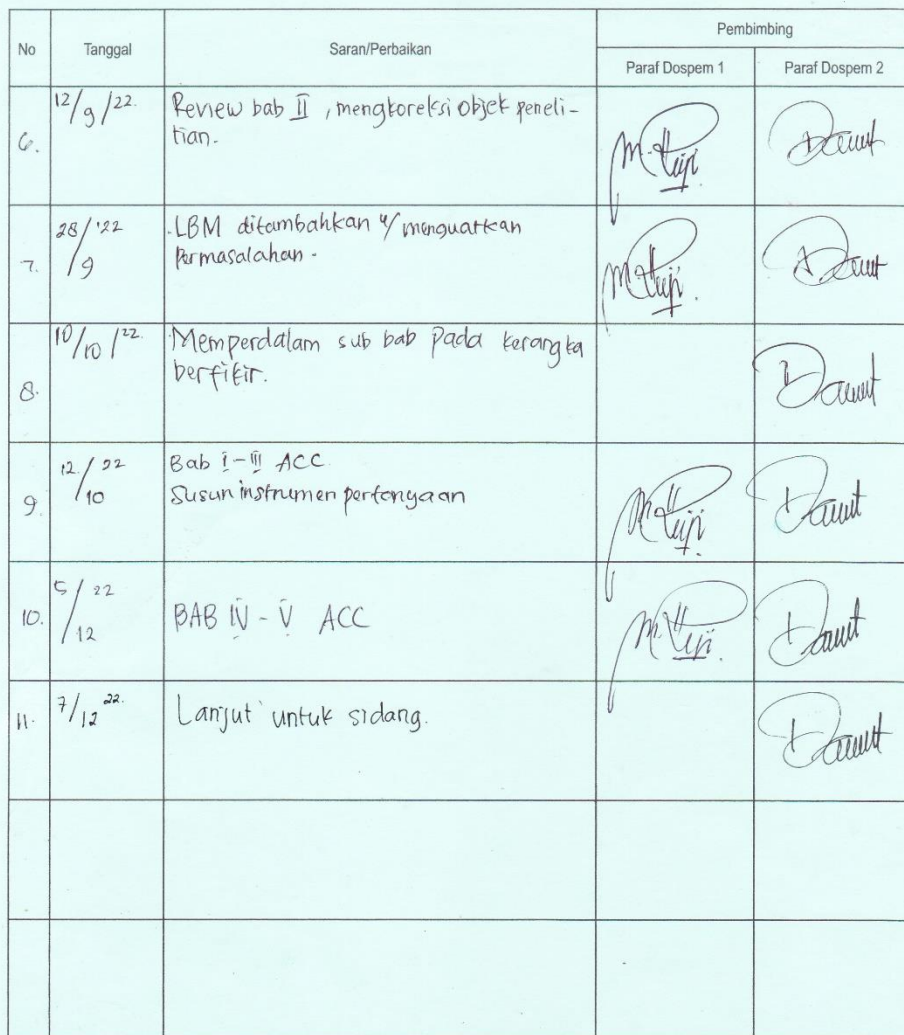 No Tanggal Saran/Perbaikan Pembimbing
Paraf Dospem 1 Paraf Dospem 2
6. 12/9/22. Review bab II, mengkoreksi objek peneli-
tian.
7. 28/9 '22 LBM ditambahkan u/ menguatkan
Permasalahan.
8. 10/10/22. Memperdalam sub bab pada kerangka
berfikir.
9. 12/10 22 Bab I-III ACC
Susun instrumen pertanyaan
10. 5/12 22 BAB IV - V ACC
11. 7/12 22. Lanjut untuk sidang.